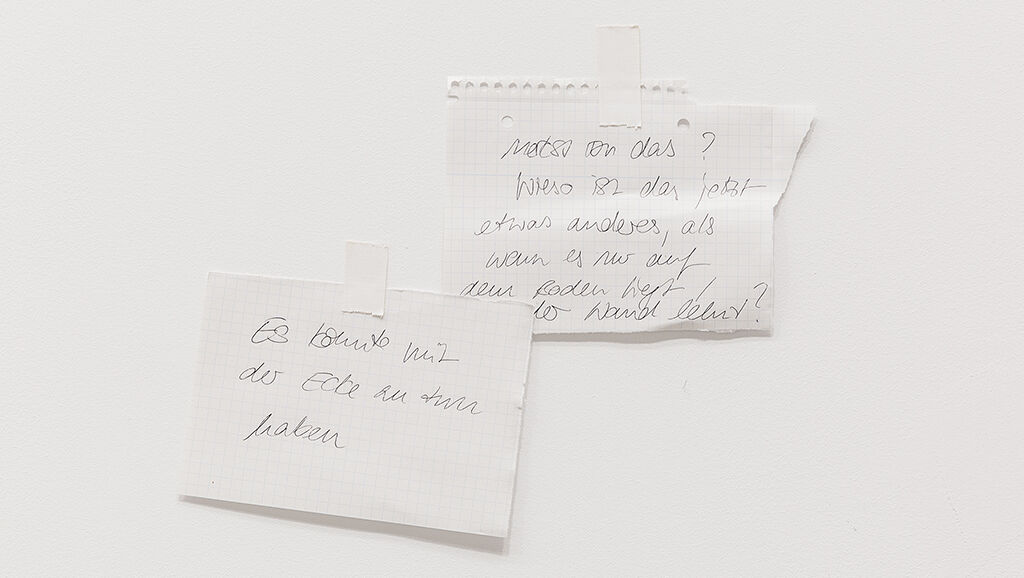 das ?
Wieso ist das jetzt
etwas anderes, als
wenn es nur auf
dem Boden liegt /
der Wand lehnt?
Es könnte mit
der Ecke zu tun
haben